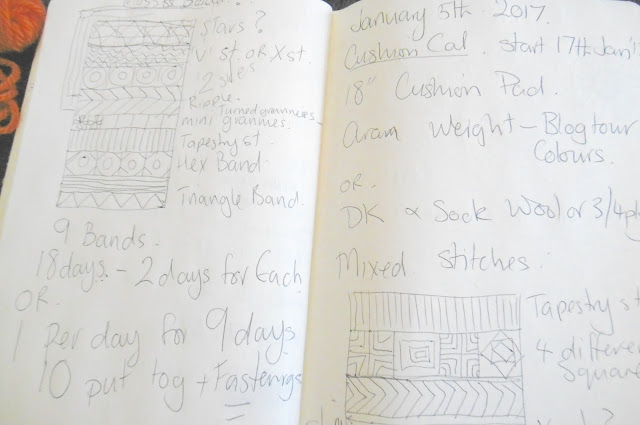 Stars?
'V' St. OR X st.
2 sides
Ripple.
Turned grannies
mini grannies.
Tapestry st.
Hex Band.
Triangle Band.
9 Bands.
18 days - 2 days for Each
OR.
1 Per day for 9 days
10 put tog + Fastenings
January 5th 2017.
Cushion Cal. start 17th Jan'1
18" Cushion Pad.
Aran Weight - Blog tour
Colours.
OR.
DK & Sock Wool or 3/4 pl
Mixed Stitches.
Tapestry st
4 differe
Square